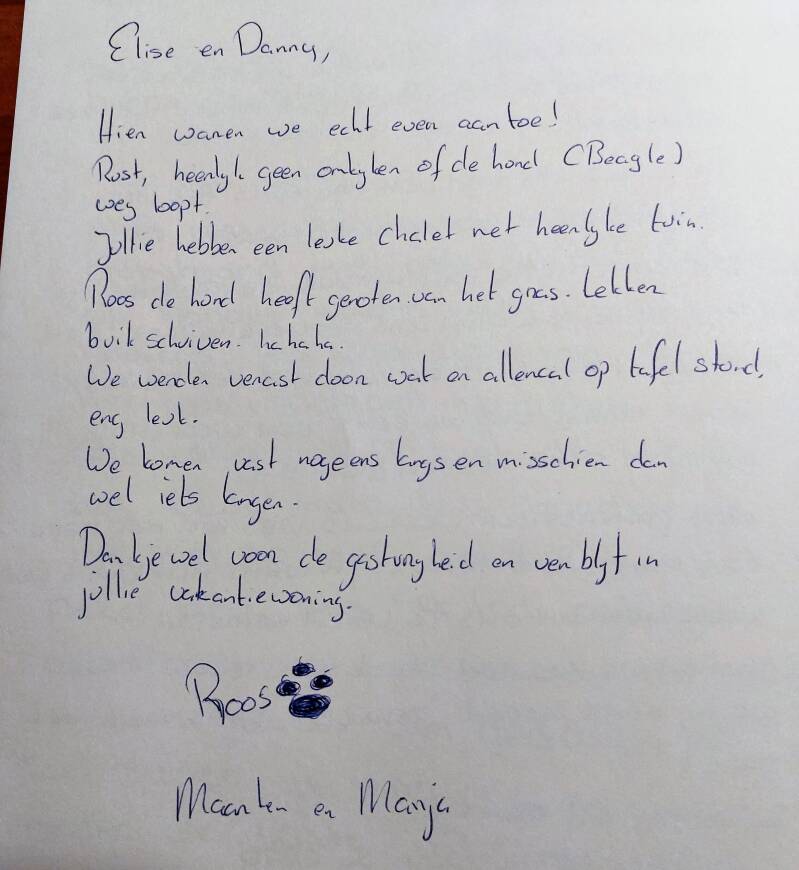 Elise en Danny,
Hier waren we echt even aan toe!
Rust, heerlyk geen omkyken of de hond (Beagle)
weg loopt.
Jullie hebben een leuke chalet met heerlyke tuin.
Roos de hond heeft genoten van het gras. Lekker
buik schuiven. hahaha.
We werden verrast door wat er allemaal op tafel stond,
erg leuk.
We komen vast nog eens langs en misschien dan
wel iets langer.
Dankjewel voor de gastvryheid en verblyf in
jullie vakantiewoning.
Roos
Maarten en Manja